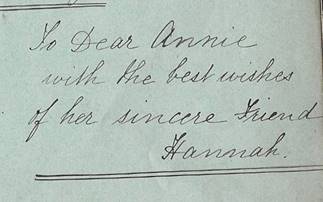 To Dear Annie
with the best wishes
of her sincere Friend
Hannah.